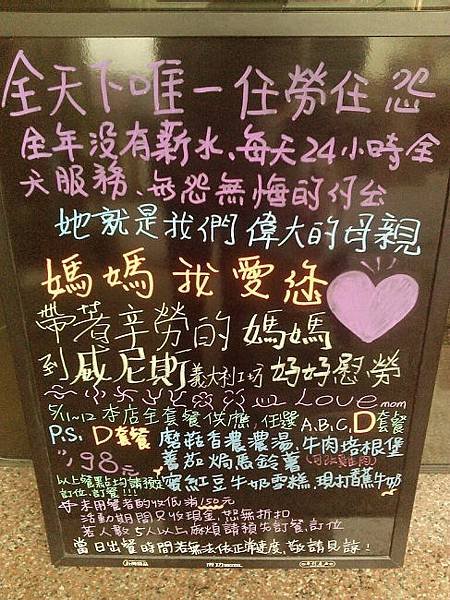 全天下唯一任勞任怨
全年沒有薪水、每天24小時全
天服務、無怨無悔的付出
她就是我們偉大的母親
媽媽我愛您
帶著辛勞的媽媽
到威尼斯義大利工坊 好好慰勞
LOVE mom
5/11~12 本店全套餐供應,任選A.B.C.D套餐
P.S. D套餐 蘑菇香濃濃湯,牛肉培根堡
198元 蕃茄焗馬鈴薯(可換雞肉)
蜜紅豆牛奶雪糕,現打木瓜牛奶
以上餐點均請預定
訂位,訂餐!!!
未用餐者酌收低消150元
活動期間只收現金,恕無折扣
若人數5人以上麻煩請預先訂餐,訂位
當日出餐時間若無法依正常速度,敬請見諒!